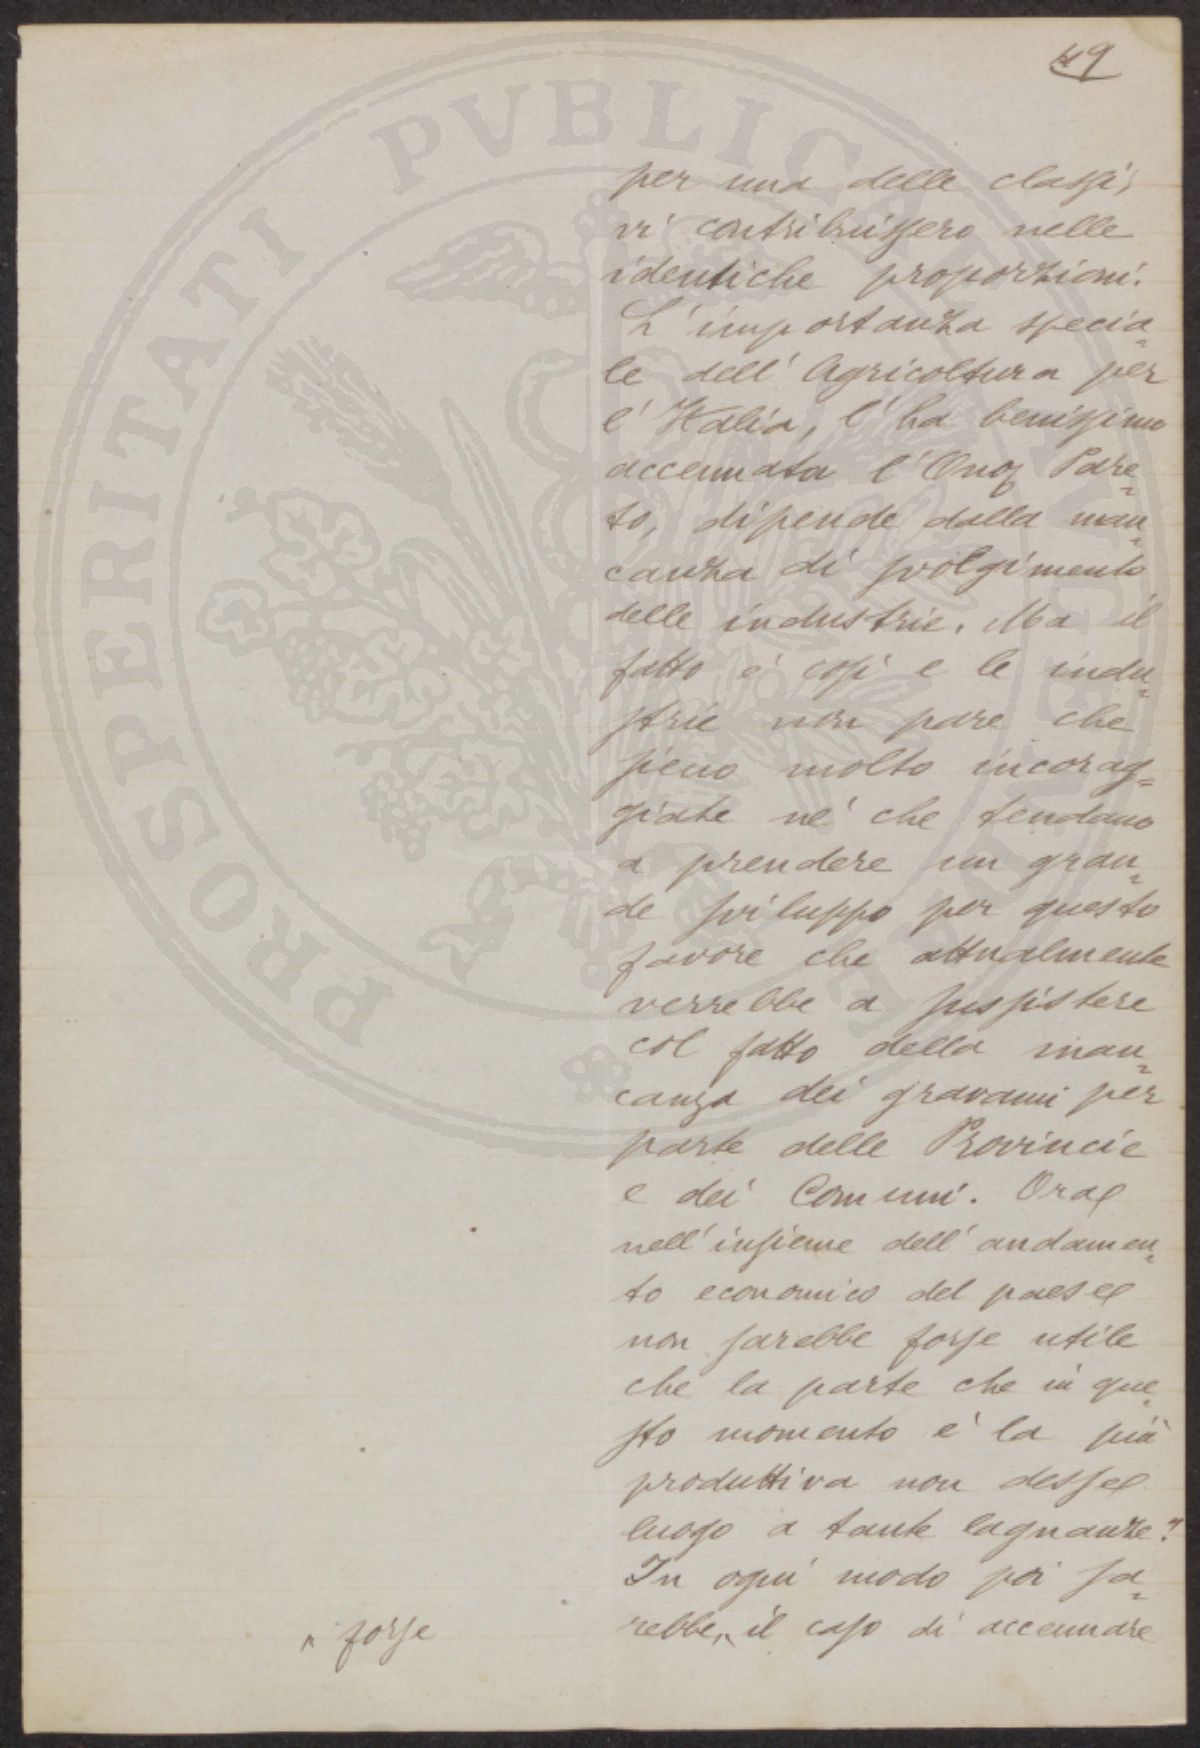 49
per una delle classi,
vi contribuissero nelle
identiche proporzioni.
L'importanza specia=
le dell'Agricoltura per
l'Italia, l'ha benissimo
accennata l'Onor Pare=
to, dipende dalla man=
canza di svolgimento
delle industrie. Ma il
fatto è così e le indu=
strie non pare che
sieno molto incorag=
giate nè che tendano
a prendere un gran=
de sviluppo per questo
favore che attualmente
verrebbe a sussistere
col fatto della man=
canza dei gravami per
parte delle Provincie
e dei Comuni. Ora
nell'insieme dell'andamen=
to economico del paese
non sarebbe forse utile
che la parte che in que=
sto momento è la più
produttiva non desse
luogo a tante lagnanze?
In ogni modo poi sa=
rebbe, il caso di accennare
forse
PROSPERITATI PVBLICAE